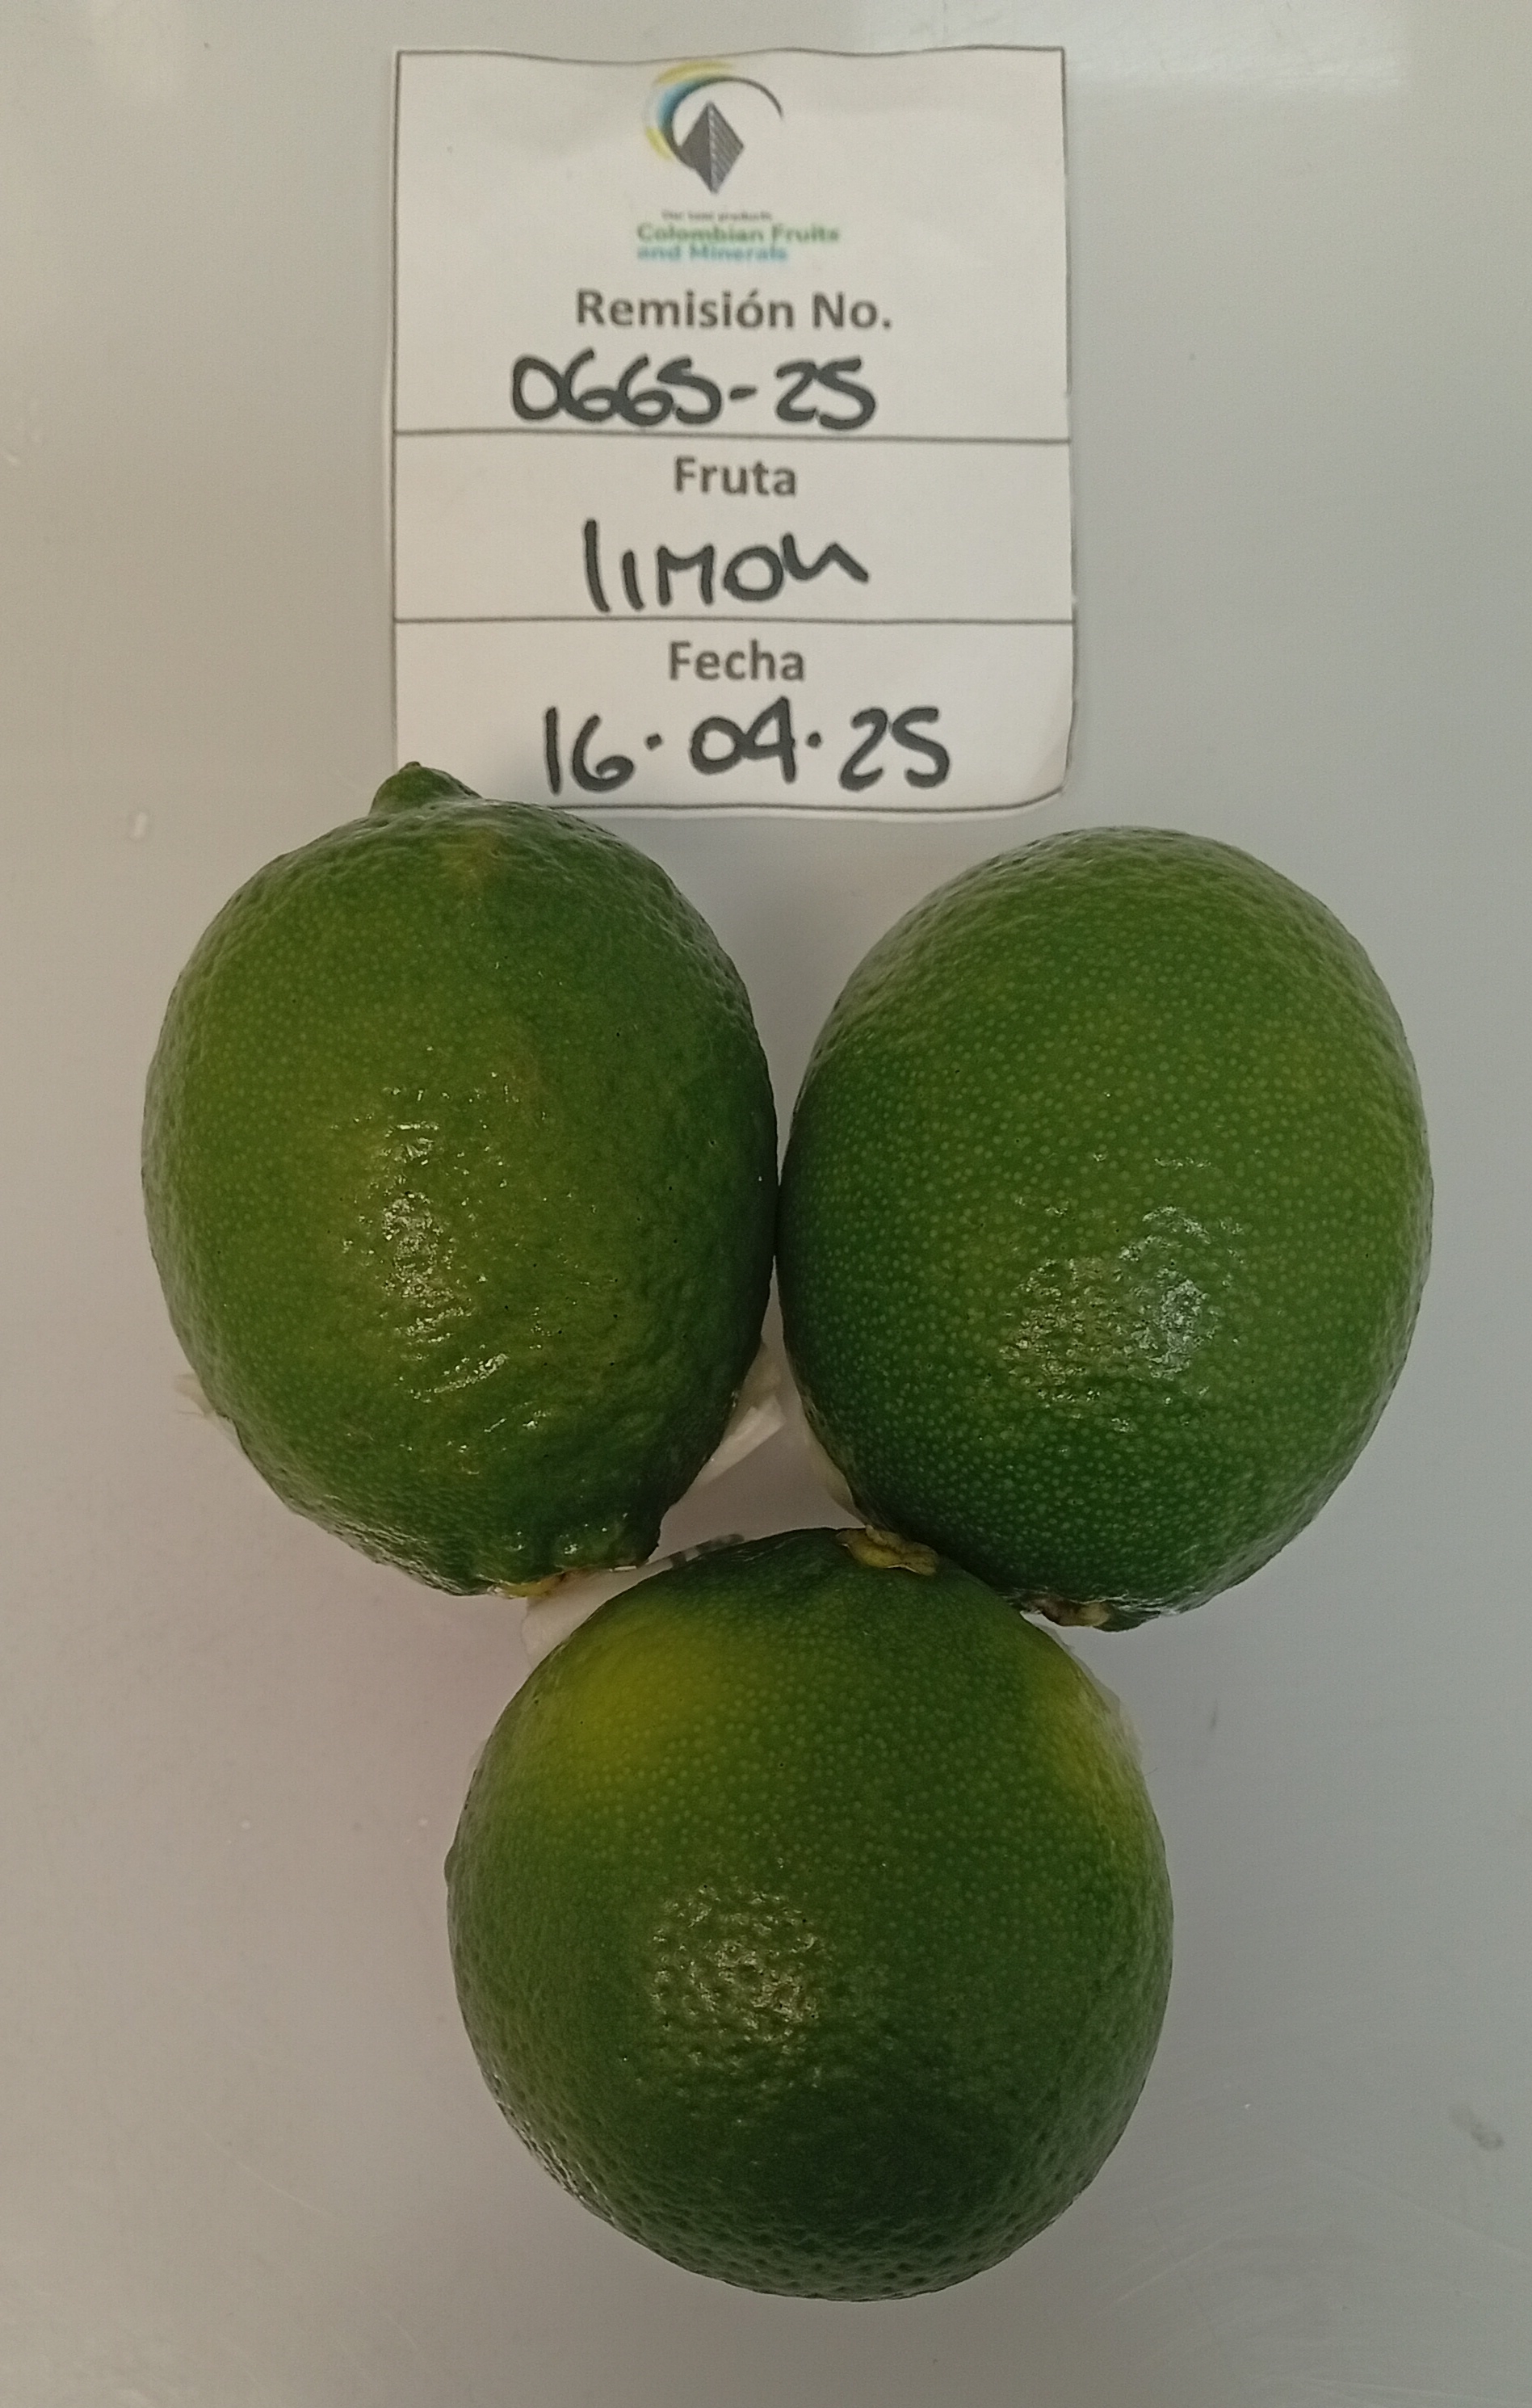 Our best products
Colombian Fruits
and Minerals
Remisión No.
0665-25
Fruta
limon
Fecha
16·04·25